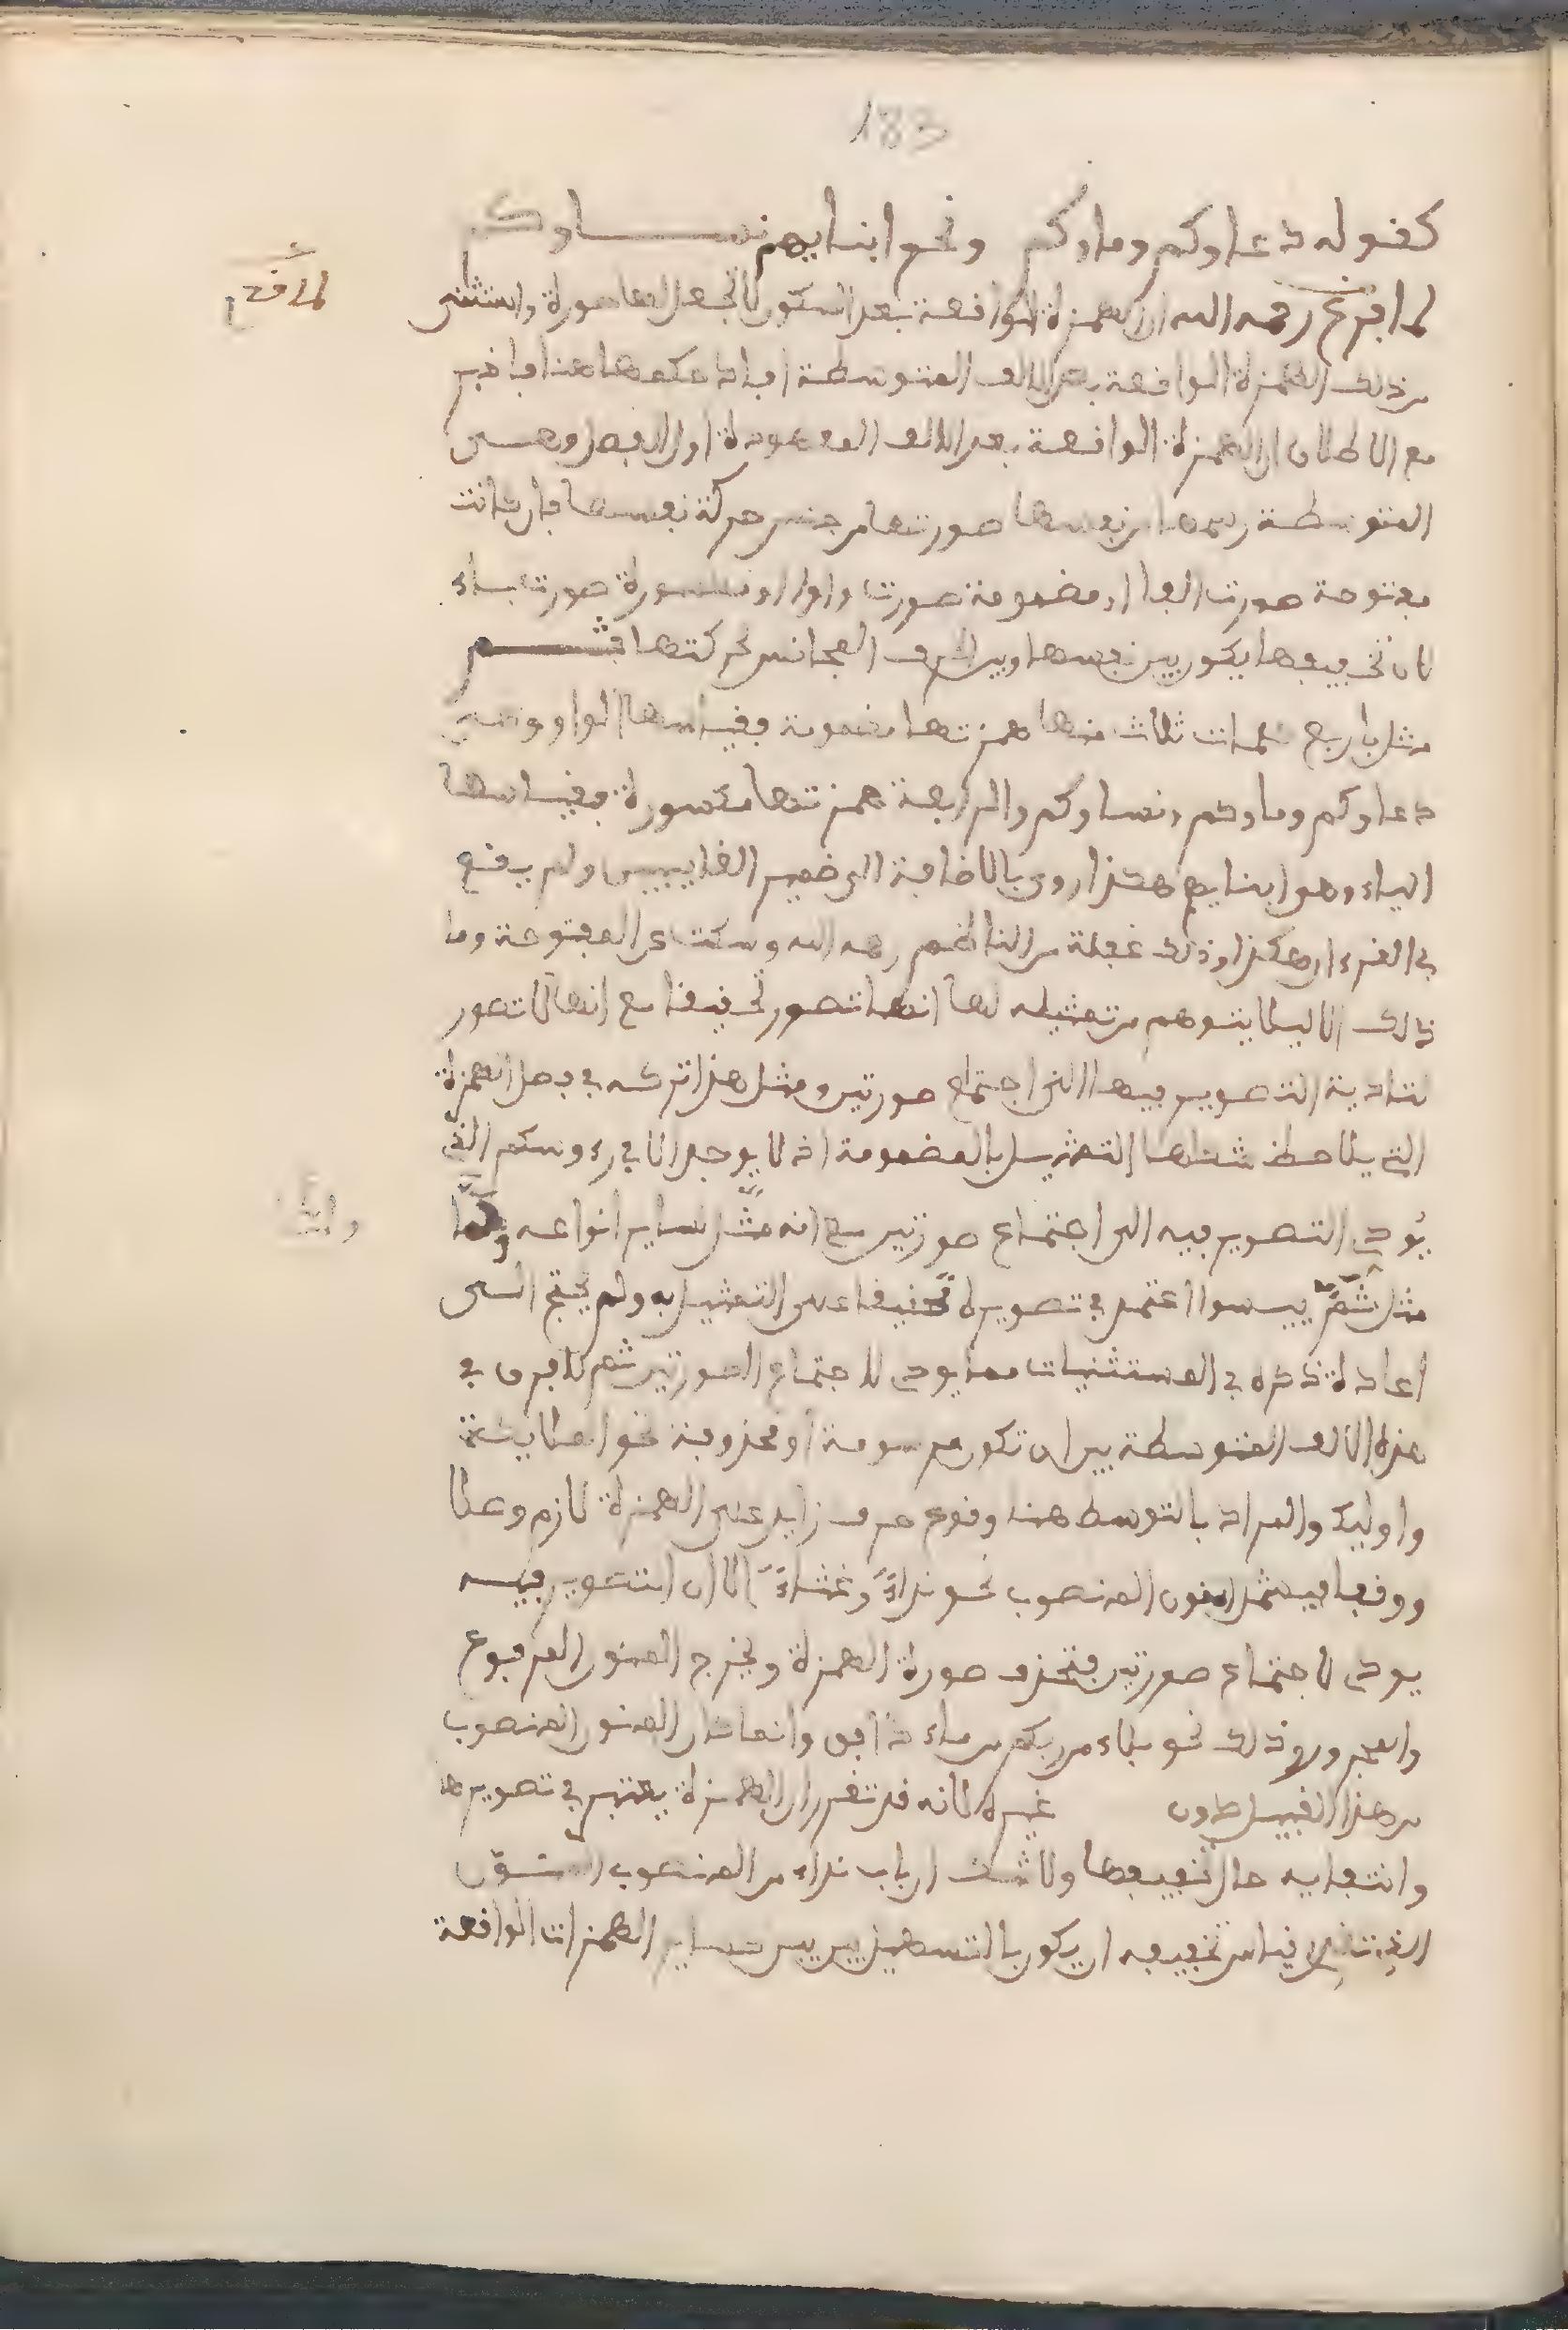 183
كقوله دعاوكم وماوكم ونحو ابنايهم نساوكم
لما فرغ رحمه الله ان الهمزة الواقعة بعد السكون لا تجعل لها صورة واستثنى
لما قدم
من ذلك الهمزة الواقعة بعد الالف المتوسطة افاد حكمها هنا فاخبر
مع الاطلاق ان الهمزة الواقعة بعد الالف المعهودة اول الفصل وهي
المتوسطة رسمها من نفسها صورتها من جنس حركة نفسها فان كانت
مفتوحة صورت الفا او مضمومة صورت واوا او مكسورة صورت ياء
لان تخفيفها يكون بين نفسها وبين الحرف المجانس لحركتها ثم
مثل باربع كلمات ثلاث منها همزتها مضمومة فقياسها الواو وهي
دعاوكم وماوكم ونساوكم والرابعة همزتها مكسورة فقياسها
الياء وهو ابنايهم هكذا روي بالاضافة الى ضمير الغايبين ولم يقع
في القرءان هكذا وذلك غفلة من الناظم رحمه الله وسكت عن المفتوحة وما
ذلك الا ليلا يتوهم من تمثيله لها انها تصور تحقيقا مع انها لا تصور
لتادية التصوير فيها الى اجتماع صورتين ومثل هذا تركه في فصل الهمزة
التي يلاحظ شكلها التمثيل بالمضمومة اذ لا يوجد الا في رءوسكم الذي
يودي التصوير فيه الى اجتماع صورتين مع انه مثل لساير انواعه ولما
وايضا
مثل ثم بييسوا اعتمد في تصويره تحقيقا على التمثيل به ولم يحتج الى
اعادة ذكره في المستثنيات مما يودي لاجتماع الصورتين ثم لا فرق في
هذه الالف المتوسطة بين ان تكون مرسومة او محذوفة نحو الملايكة
واوليك والمراد بالتوسط هنا وقوع حرف زايد على الهمزة لازم وصلا
ووقفا فيشمل المنون المنصوب نحو نداءً وغثاءً الا ان التصوير فيه
يودي لاجتماع صورتين فتحذف صورة الهمزة ويخرج المنون المرفوع
والمجرور وذلك نحو بلاء من ربكم من ماء دافق وانما كان المنون المنصوب
من هذا القبيل دون غيره لانه قد تقرر ان الهمزة يعتبر في تصويرها
وانتفايه حال تخفيفها ولا شك ان باب نداء من المنصوب المنون
الذي قياس تخفيفه ان يكون بالتسهيل بين بين كساير الهمزات الواقعة